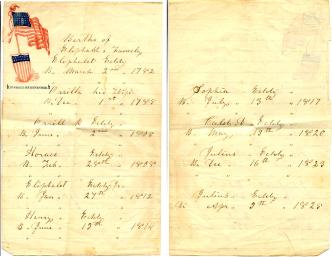 Births of
Eliphalet & Family
Eliphalet Eddy
B. March 2nd " 1782
his Wife
B. Dec. 1st " 1788
Orrill Eddy
B. June 2nd " 1808
Horace Eddy
B. Feb.
Eliphalet Eddy Jr.
B. Jan. 27th " 1812
Henry Eddy
B. June 13th " 1814
Sophia Eddy
B. July 13th " 1817
Caleb Eddy
B. May 1820
Julius Eddy
B. Dec. 16th " 1823
Julius Eddy
B. Apr. 1828